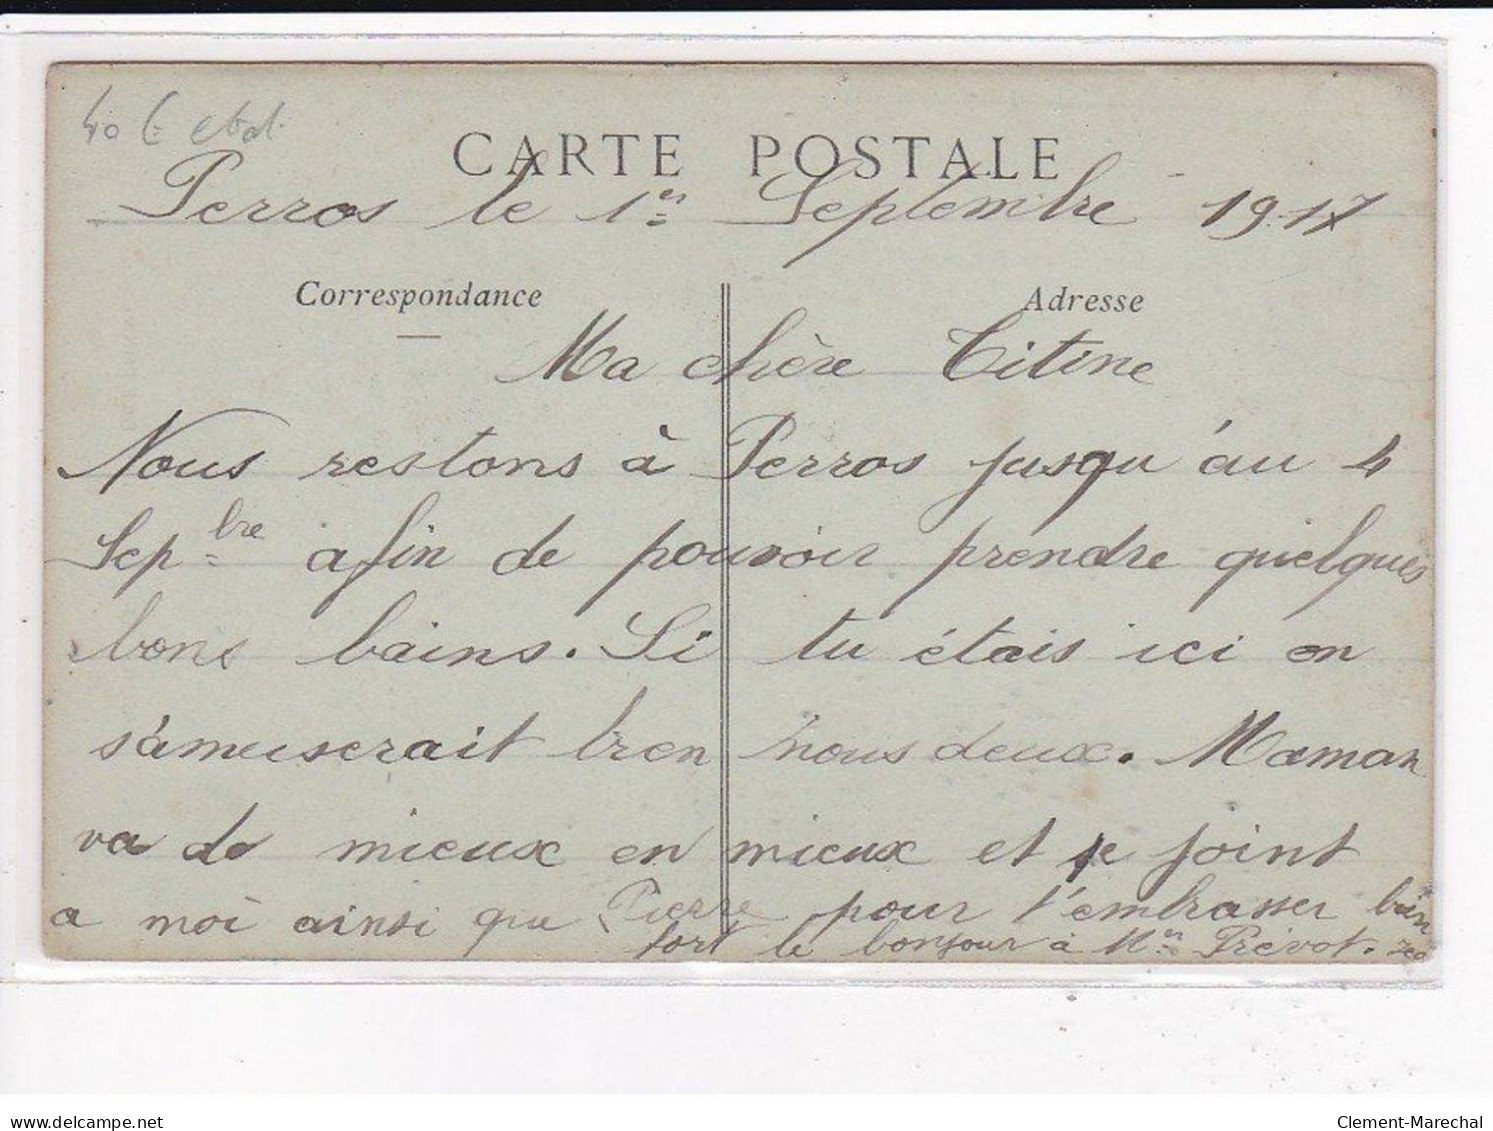 40 €
CARTE POSTALE
Perros le 1er Septembre 1917
Correspondance
Adresse
Ma chère Titine
Nous restons à Perros jusqu'au 4
Sepbre afin de pouvoir prendre quelques
bons bains. Si tu étais ici on
s'amuserait bien nous deux. Maman
va de mieux en mieux et se joint
a moi ainsi que Pierre pour t'embrasser bien
fort le bonjour à Mer Prévot.
delcampe.net
Clement-Marechal